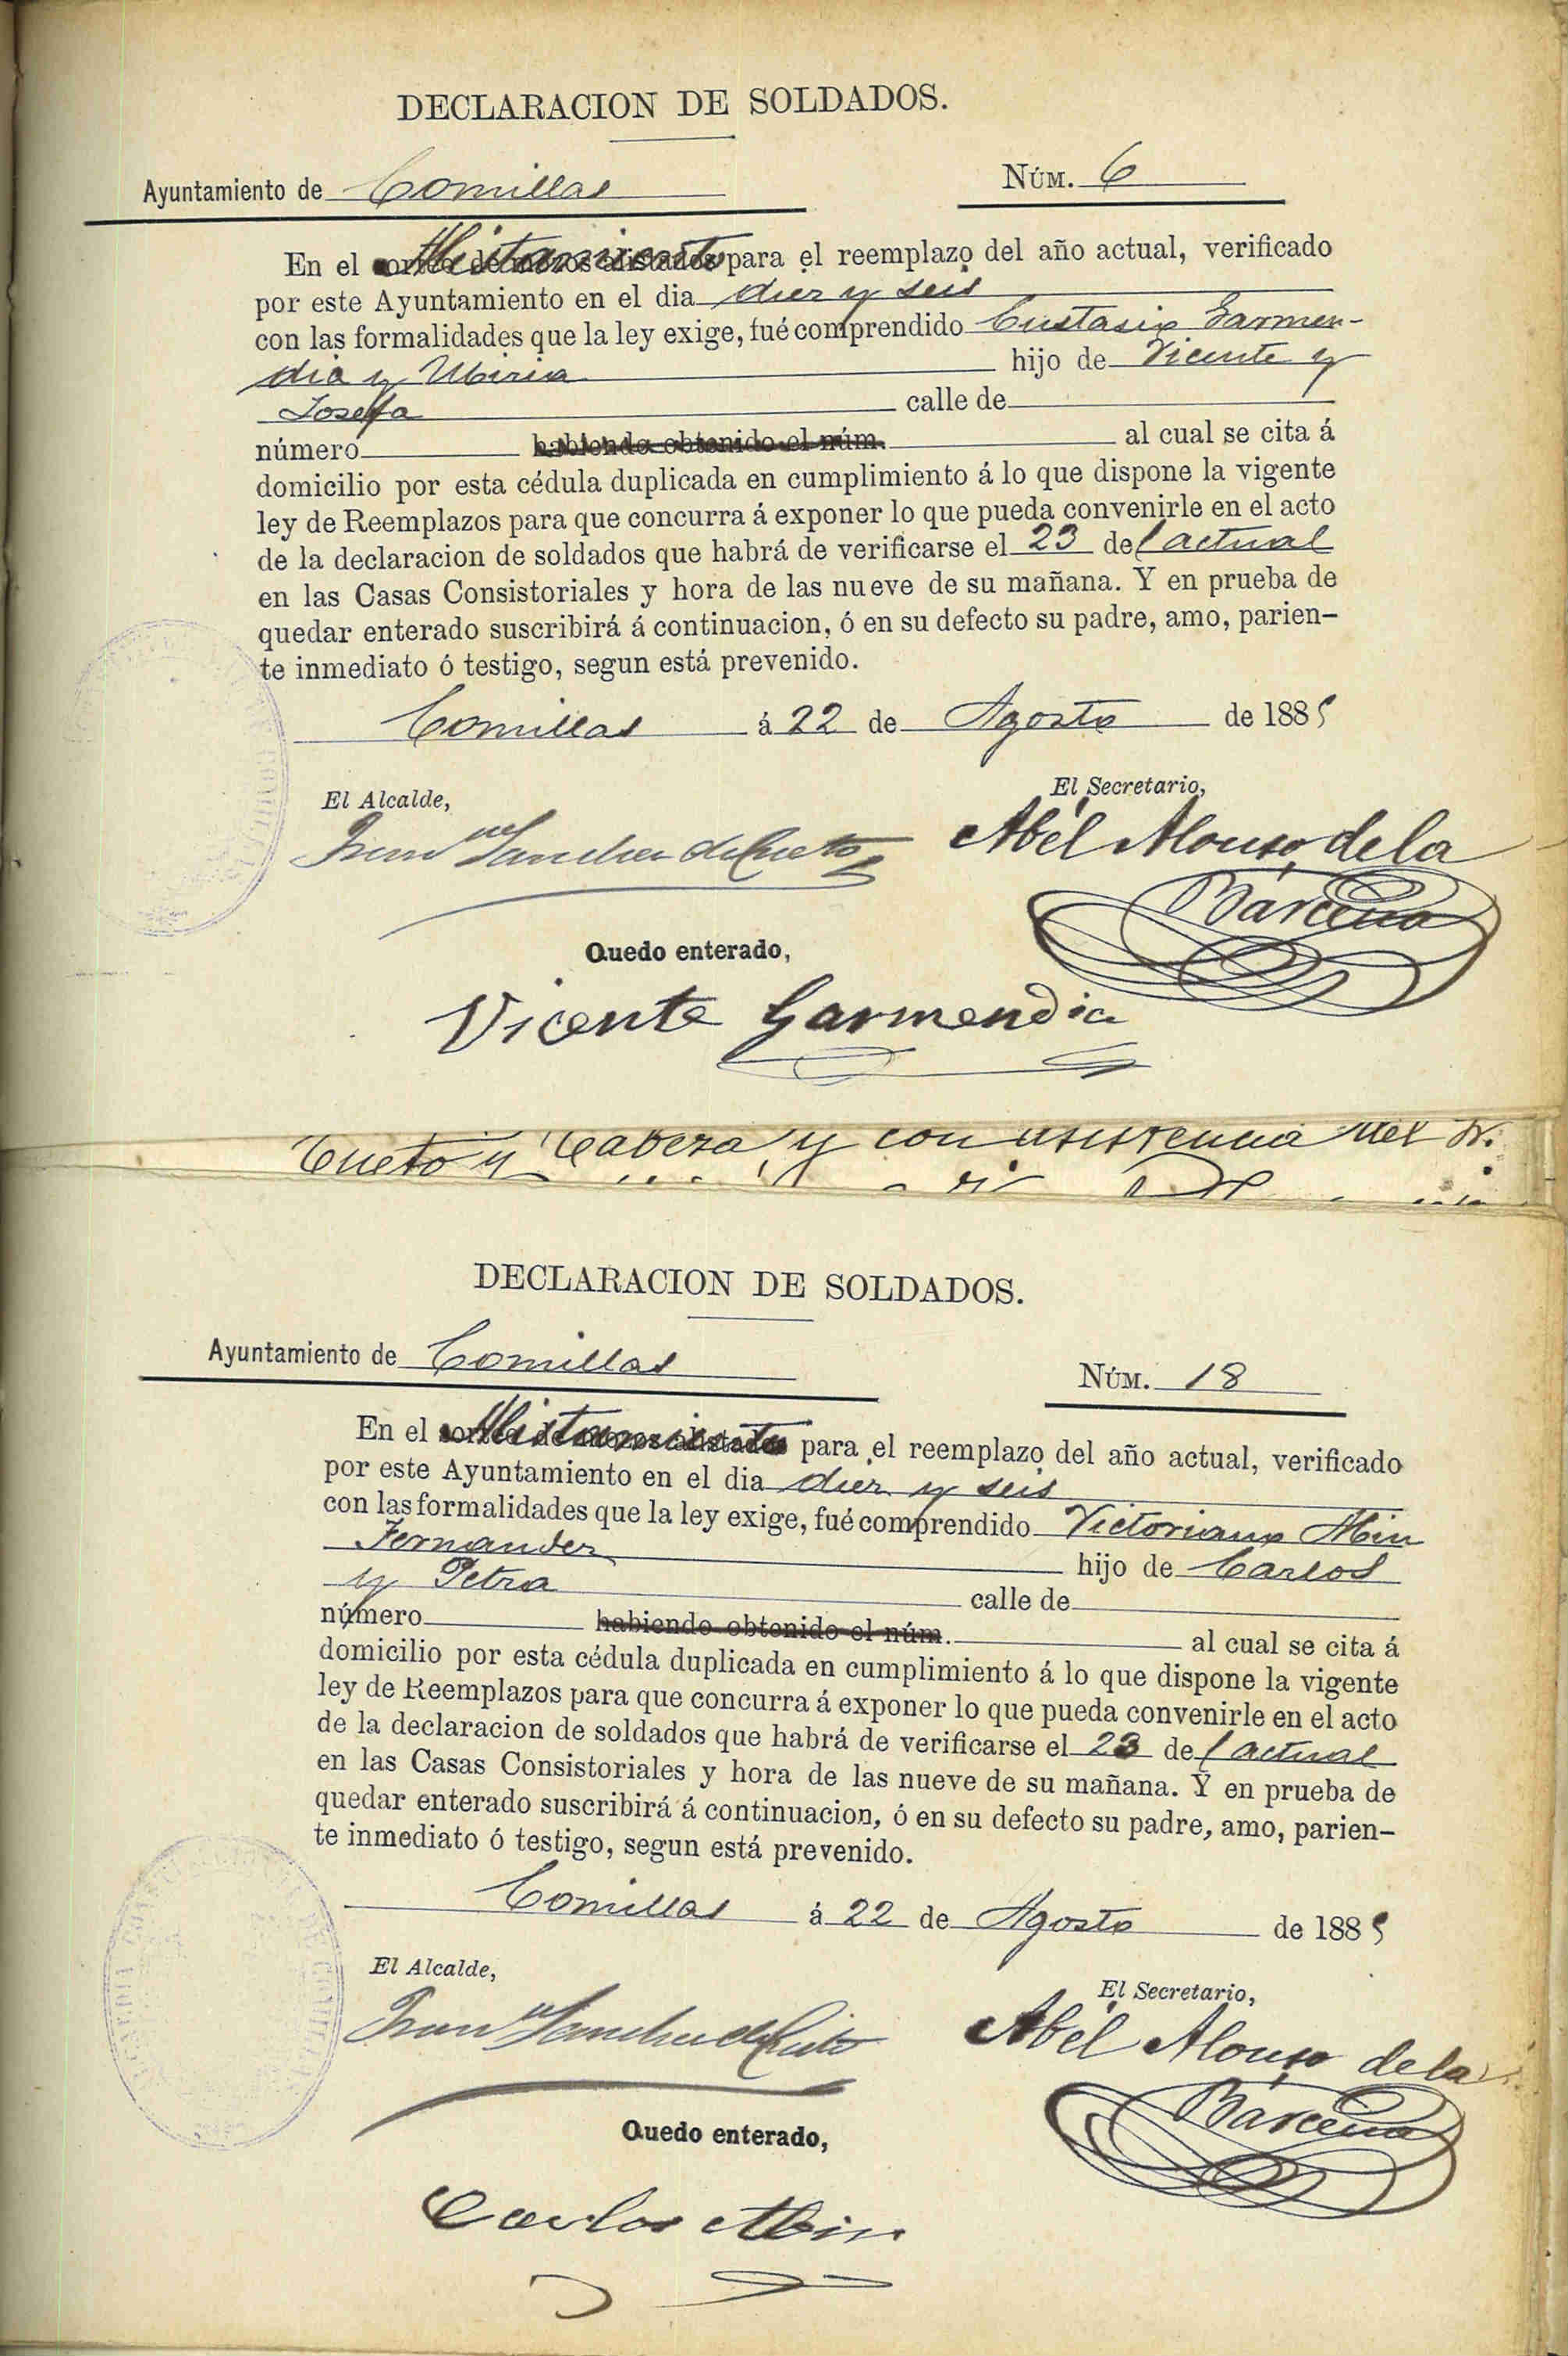 DECLARACION DE SOLDADOS.
Ayuntamiento de Comillas
NÚM. 6
En el Alistamiento para el reemplazo del año actual, verificado
por este Ayuntamiento en el dia diez y seis
con las formalidades que la ley exige, fué comprendido Eustasio Garmen-
dia y hijo de Vicente y
Josefa calle de
número habiendo obtenido el núm. al cual se cita á
domicilio por esta cédula duplicada en cumplimiento á lo que dispone la vigente
ley de Reemplazos para que concurra á exponer lo que pueda convenirle en el acto
de la declaracion de soldados que habrá de verificarse el 23 del actual
en las Casas Consistoriales y hora de las nueve de su mañana. Y en prueba de
quedar enterado suscribirá á continuacion, ó en su defecto su padre, amo, parien-
te inmediato ó testigo, segun está prevenido.
Comillas á 22 de Agosto de 1885
El Alcalde,
El Secretario,
Juan Sanchez de Cueto
Abél Alonso de la
Bárcena
Quedo enterado,
Vicente Garmendia
Cueto y Cabeza y con asistencia del Sr.
DECLARACION DE SOLDADOS.
Ayuntamiento de Comillas
NÚM. 18
En el Alistamiento para el reemplazo del año actual, verificado
por este Ayuntamiento en el dia diez y seis
con las formalidades que la ley exige, fué comprendido Victoriano Abin
Fernandez hijo de Carlos
y Petra calle de
número habiendo obtenido el núm. al cual se cita á
domicilio por esta cédula duplicada en cumplimiento á lo que dispone la vigente
ley de Reemplazos para que concurra á exponer lo que pueda convenirle en el acto
de la declaracion de soldados que habrá de verificarse el 23 del actual
en las Casas Consistoriales y hora de las nueve de su mañana. Y en prueba de
quedar enterado suscribirá á continuacion, ó en su defecto su padre, amo, parien-
te inmediato ó testigo, segun está prevenido.
Comillas á 22 de Agosto de 1885
El Alcalde,
El Secretario,
Juan Sanchez de Cueto
Abél Alonso de la
Bárcena
Quedo enterado,
Carlos Abin